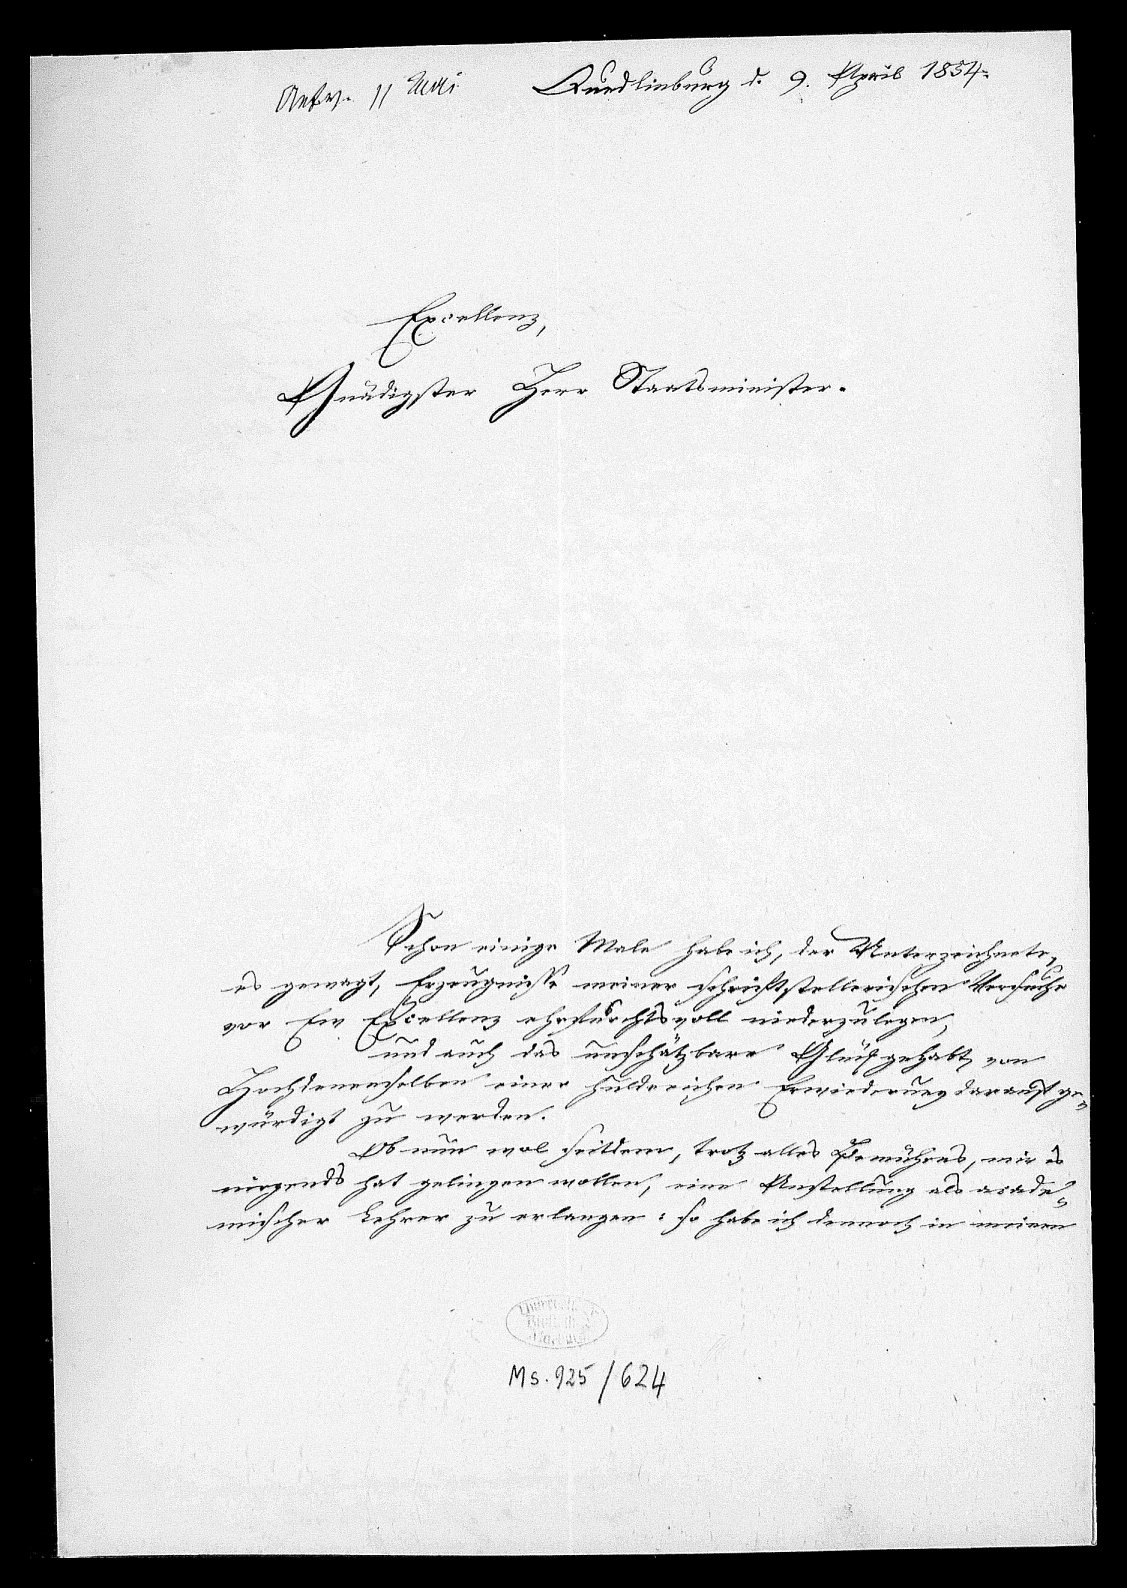 Antw. 11 Mai
Quedlinburg d. 9. April 1854.
Excellenz,
Gnädigster Herr Staatsminister.
Schon einige Male habe ich, der Unterzeichnete,
es gewagt, Erzeugnisse meiner schriftstellerischen Versuche
vor Ew Excellenz ehrfurchtsvoll niederzulegen,
und auch das unschätzbare Glück gehabt, von
Hochdenenselben einer huldreichen Erwiederung darauf ge-
würdigt zu werden.
Ob nun wol seitdem, trotz alles Bemühens, mir es
nirgends hat gelingen wollen, eine Anstellung als acade-
mischer Lehrer zu erlangen: so habe ich dennoch in meinen
Ms. 925/624